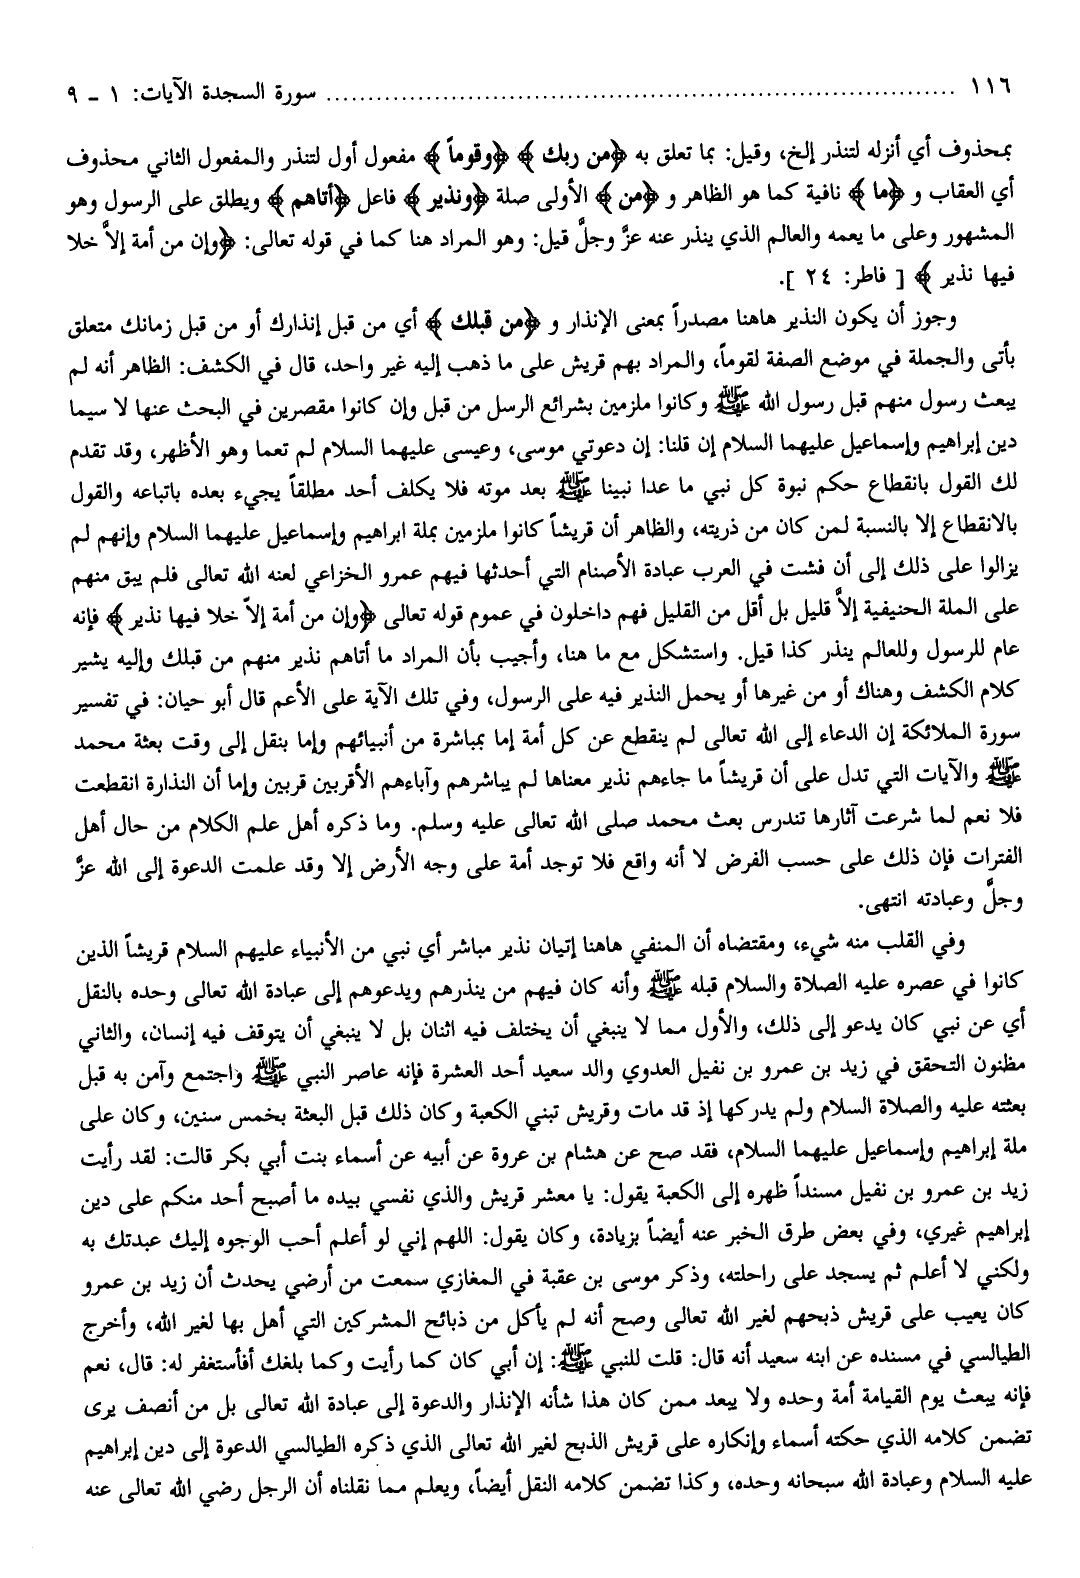 ١١٦ ........................................................................ سورة السجدة الآيات: ١ ـ ٩
بمحذوف أي أنزله لتنذر إلخ، وقيل: بما تعلق به ﴿من ربك﴾ ﴿وقوماً﴾ مفعول أول لتنذر والمفعول الثاني محذوف
أي العقاب و ﴿ما﴾ نافية كما هو الظاهر و ﴿من﴾ الأولى صلة ﴿ونذير﴾ فاعل ﴿أتاهم﴾ ويطلق على الرسول وهو
المشهور وعلى ما يعمه والعالم الذي ينذر عنه عزَّ وجلَّ قيل: وهو المراد هنا كما في قوله تعالى: ﴿وإن من أمة إلاَّ خلا
فيها نذير﴾ [ فاطر: ٢٤ ].
وجوز أن يكون النذير هاهنا مصدراً بمعنى الإنذار و ﴿من قبلك﴾ أي من قبل إنذارك أو من قبل زمانك متعلق
بأتى والجملة في موضع الصفة لقوماً، والمراد بهم قريش على ما ذهب إليه غير واحد، قال في الكشف: الظاهر أنه لم
يبعث رسول منهم قبل رسول الله ﷺ وكانوا ملزمين بشرائع الرسل من قبل وإن كانوا مقصرين في البحث عنها لا سيما
دين إبراهيم وإسماعيل عليهما السلام إن قلنا: إن دعوتي موسى، وعيسى عليهما السلام لم تعما وهو الأظهر، وقد تقدم
لك القول بانقطاع حكم نبوة كل نبي ما عدا نبينا ﷺ بعد موته فلا يكلف أحد مطلقاً يجيء بعده باتباعه والقول
بالانقطاع إلا بالنسبة لمن كان من ذريته، والظاهر أن قريشاً كانوا ملزمين بملة ابراهيم وإسماعيل عليهما السلام وإنهم لم
يزالوا على ذلك إلى أن فشت في العرب عبادة الأصنام التي أحدثها فيهم عمرو الخزاعي لعنه الله تعالى فلم يبق منهم
على الملة الحنيفية إلاَّ قليل بل أقل من القليل فهم داخلون في عموم قوله تعالى ﴿وإن من أمة إلاّ خلا فيها نذير﴾ فإنه
عام للرسول وللعالم ينذر كذا قيل. واستشكل مع ما هنا، وأجيب بأن المراد ما أتاهم نذير منهم من قبلك وإليه يشير
كلام الكشف وهناك أو من غيرها أو يحمل النذير فيه على الرسول، وفي تلك الآية على الأعم قال أبو حيان: في تفسير
سورة الملائكة إن الدعاء إلى الله تعالى لم ينقطع عن كل أمة إما بمباشرة من أنبيائهم وإما بنقل إلى وقت بعثة محمد
ﷺ والآيات التي تدل على أن قريشاً ما جاءهم نذير معناها لم يباشرهم وآباءهم الأقربين قربين وإما أن النذارة انقطعت
فلا نعم لما شرعت آثارها تندرس بعث محمد صلى الله تعالى عليه وسلم. وما ذكره أهل علم الكلام من حال أهل
الفترات فإن ذلك على حسب الفرض لا أنه واقع فلا توجد أمة على وجه الأرض إلا وقد علمت الدعوة إلى الله عزَّ
وجلَّ وعبادته انتهى.
وفي القلب منه شيء، ومقتضاه أن المنفي هاهنا إتيان نذير مباشر أي نبي من الأنبياء عليهم السلام قريشاً الذين
كانوا في عصره عليه الصلاة والسلام قبله ﷺ وأنه كان فيهم من ينذرهم ويدعوهم إلى عبادة الله تعالى وحده بالنقل
أي عن نبي كان يدعو إلى ذلك، والأول مما لا ينبغي أن يختلف فيه اثنان بل لا ينبغي أن يتوقف فيه إنسان، والثاني
مظنون التحقق في زيد بن عمرو بن نفيل العدوي والد سعيد أحد العشرة فإنه عاصر النبي ﷺ واجتمع وآمن به قبل
بعثته عليه والصلاة السلام ولم يدركها إذ قد مات وقريش تبني الكعبة وكان ذلك قبل البعثة بخمس سنين، وكان على
ملة إبراهيم وإسماعيل عليهما السلام، فقد صح عن هشام بن عروة عن أبيه عن أسماء بنت أبي بكر قالت: لقد رأيت
زيد بن عمرو بن نفيل مسنداً ظهره إلى الكعبة يقول: يا معشر قريش والذي نفسي بيده ما أصبح أحد منكم على دين
إبراهيم غيري، وفي بعض طرق الخبر عنه أيضاً بزيادة، وكان يقول: اللهم إني لو أعلم أحب الوجوه إليك عبدتك به
ولكني لا أعلم ثم يسجد على راحلته، وذكر موسى بن عقبة في المغازي سمعت من أرضي يحدث أن زيد بن عمرو
كان يعيب على قريش ذبحهم لغير الله تعالى وصح أنه لم يأكل من ذبائح المشركين التي أهل بها لغير الله، وأخرج
الطيالسي في مسنده عن ابنه سعيد أنه قال: قلت للنبي ﷺ: إن أبي كان كما رأيت وكما بلغك أفأستغفر له: قال، نعم
فإنه يبعث يوم القيامة أمة وحده ولا يبعد ممن كان هذا شأنه الإنذار والدعوة إلى عبادة الله تعالى بل من أنصف يرى
تضمن كلامه الذي حكته أسماء وإنكاره على قريش الذبح لغير الله تعالى الذي ذكره الطيالسي الدعوة إلى دين إبراهيم
عليه السلام وعبادة الله سبحانه وحده، وكذا تضمن كلامه النقل أيضاً، ويعلم مما نقلناه أن الرجل رضي الله تعالى عنه